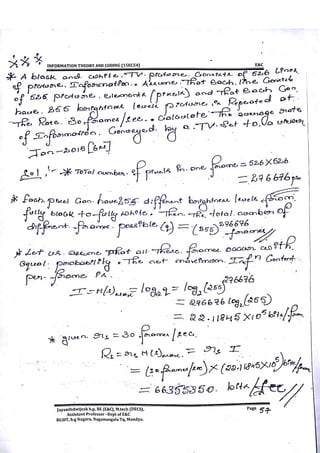 INFORMATION THEORY AND CODING (15EC54) E&C
* A black and white TV picture Consists of 526 Lines
of picture Information. Assume That Each Line Consists
of 526 picture elements (pixels) and That Each Can
have 255 brightness levels picture is Repeated at
The Rate 30 frames/sec. Calculate The average rate
of Information Conveyed by a TV Set to a viewer
Jan-2015 [6M]
Sol: * Total number of pixels in one frame = 526 X 526
= 276676 pixels
* Each pixel Can have 255 different brightness levels from
fully black to fully white. Then The total number of
different frames possible (q) = (255)^276676 frames
* Let us assume That all These frames occur with
Equal probability. The net maximum Infn Content
per frame is
I = H(s)max = log2 q = log2 (255)^276676
= 276676 log2 (255)
= 22.11845 X 10^5 bits/fram
* given rs = 30 frames/sec.
Rs = rs H(s)max. = rs I
= (30 frames/sec) X (22.11845 X 10^5) bits/fram
= 66355350. bits/sec
Jayanthdwijesh h.p. BE (E&C), M.tech (DECS).
Assistant Professor - Dept of E&C
BGSIT, b.g Nagara, Nagamangala Tq, Mandya.
Page 57